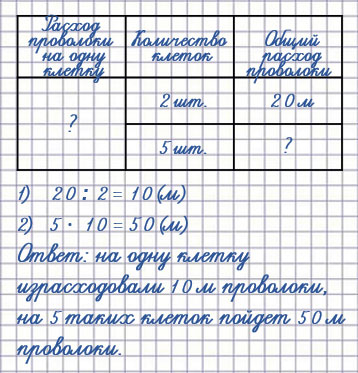 Расход
проволоки
на одну
клетку
Количество
клеток
Общий
расход
проволоки
?
2 шт.
20 м
5 шт.
?
1) 20 : 2 = 10 (м)
2) 5 · 10 = 50 (м)
Ответ: на одну клетку
израсходовали 10 м проволоки,
на 5 таких клеток пойдет 50 м
проволоки.